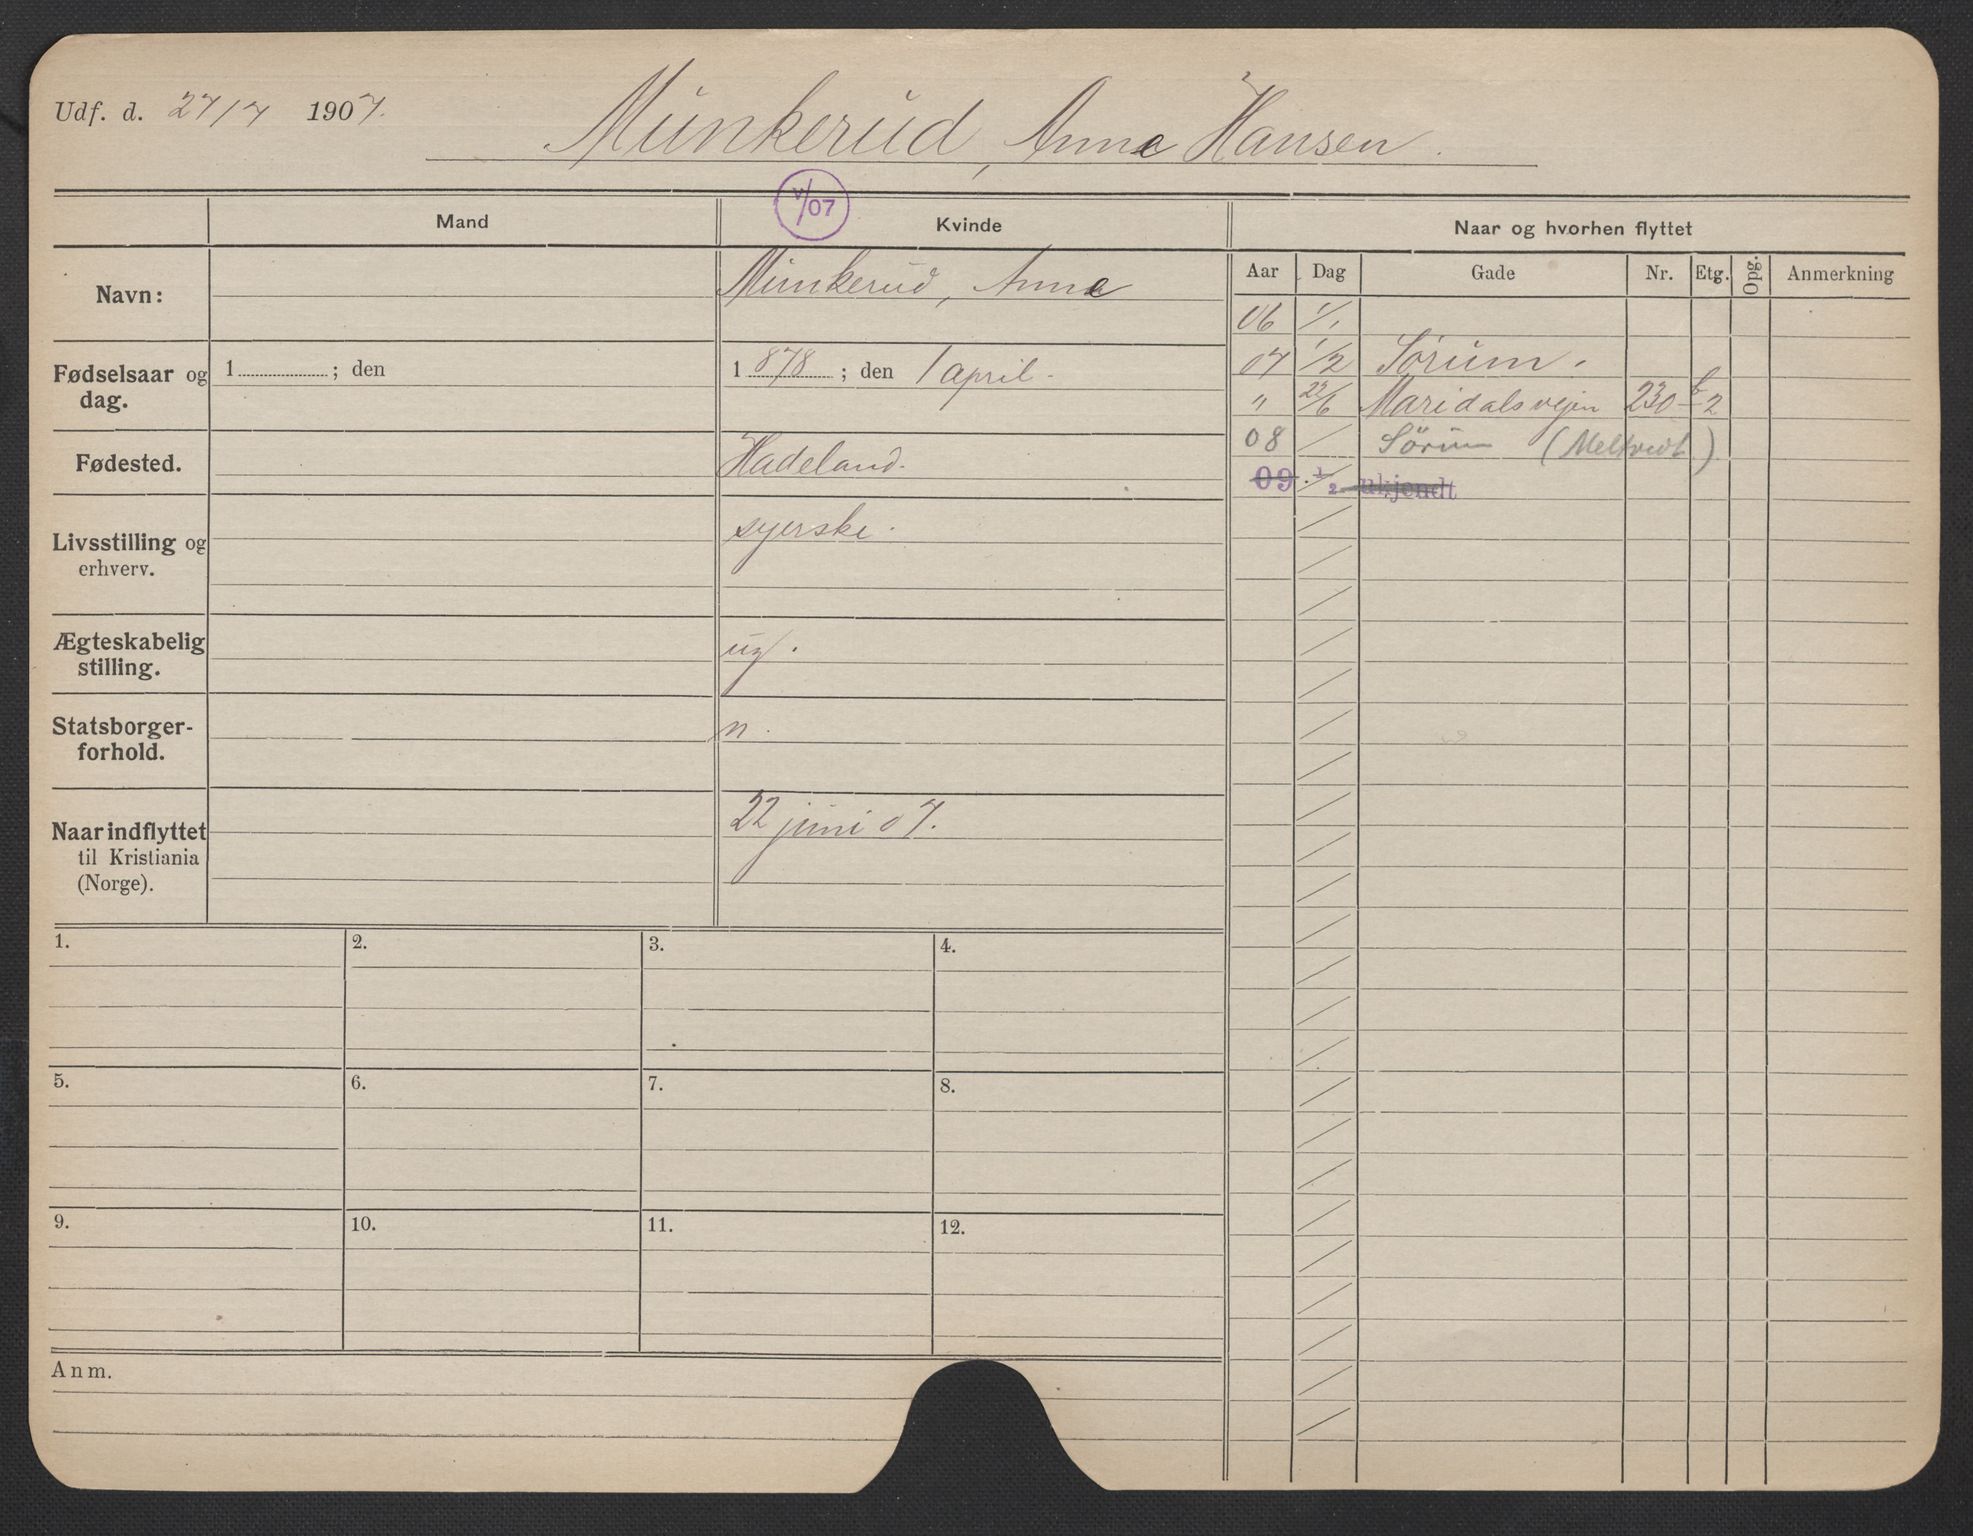 Udf. d. 27/7 1907. Munkerud, Anna Hansen.
V/07
Mand Kvinde Naar og hvorhen flyttet
Aar Dag Gade Nr. Etg. Opg. Anmerkning
Navn: Munkerud, Anna
Fødselsaar og dag. 1 ; den 1 878 ; den 1 april.
Fødested. Hadeland.
Livsstilling og erhverv. syerske.
Ægteskabelig stilling. ug.
Statsborger-forhold. n.
Naar indflyttet til Kristiania (Norge). 22 juni 07.
06 1/1
07 1/2 Sørum.
" 22/6 Maridalsvejen 230 b 2
08 / Sørum
09. 1/2 ukjendt
1. 2. 3. 4.
5. 6. 7. 8.
9. 10. 11. 12.
Anm.